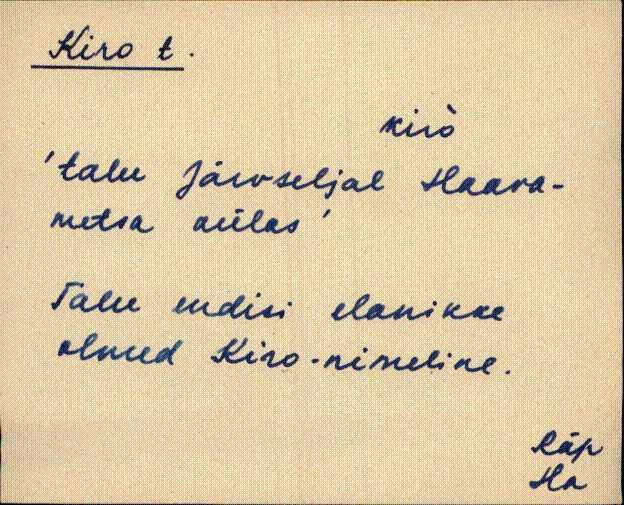 Kiro t.
kirò
'talu Järvseljal Haava-
metsa külas'
Talu endisi elanikke
olnud Kiro-nimeline.
Räp
Ha